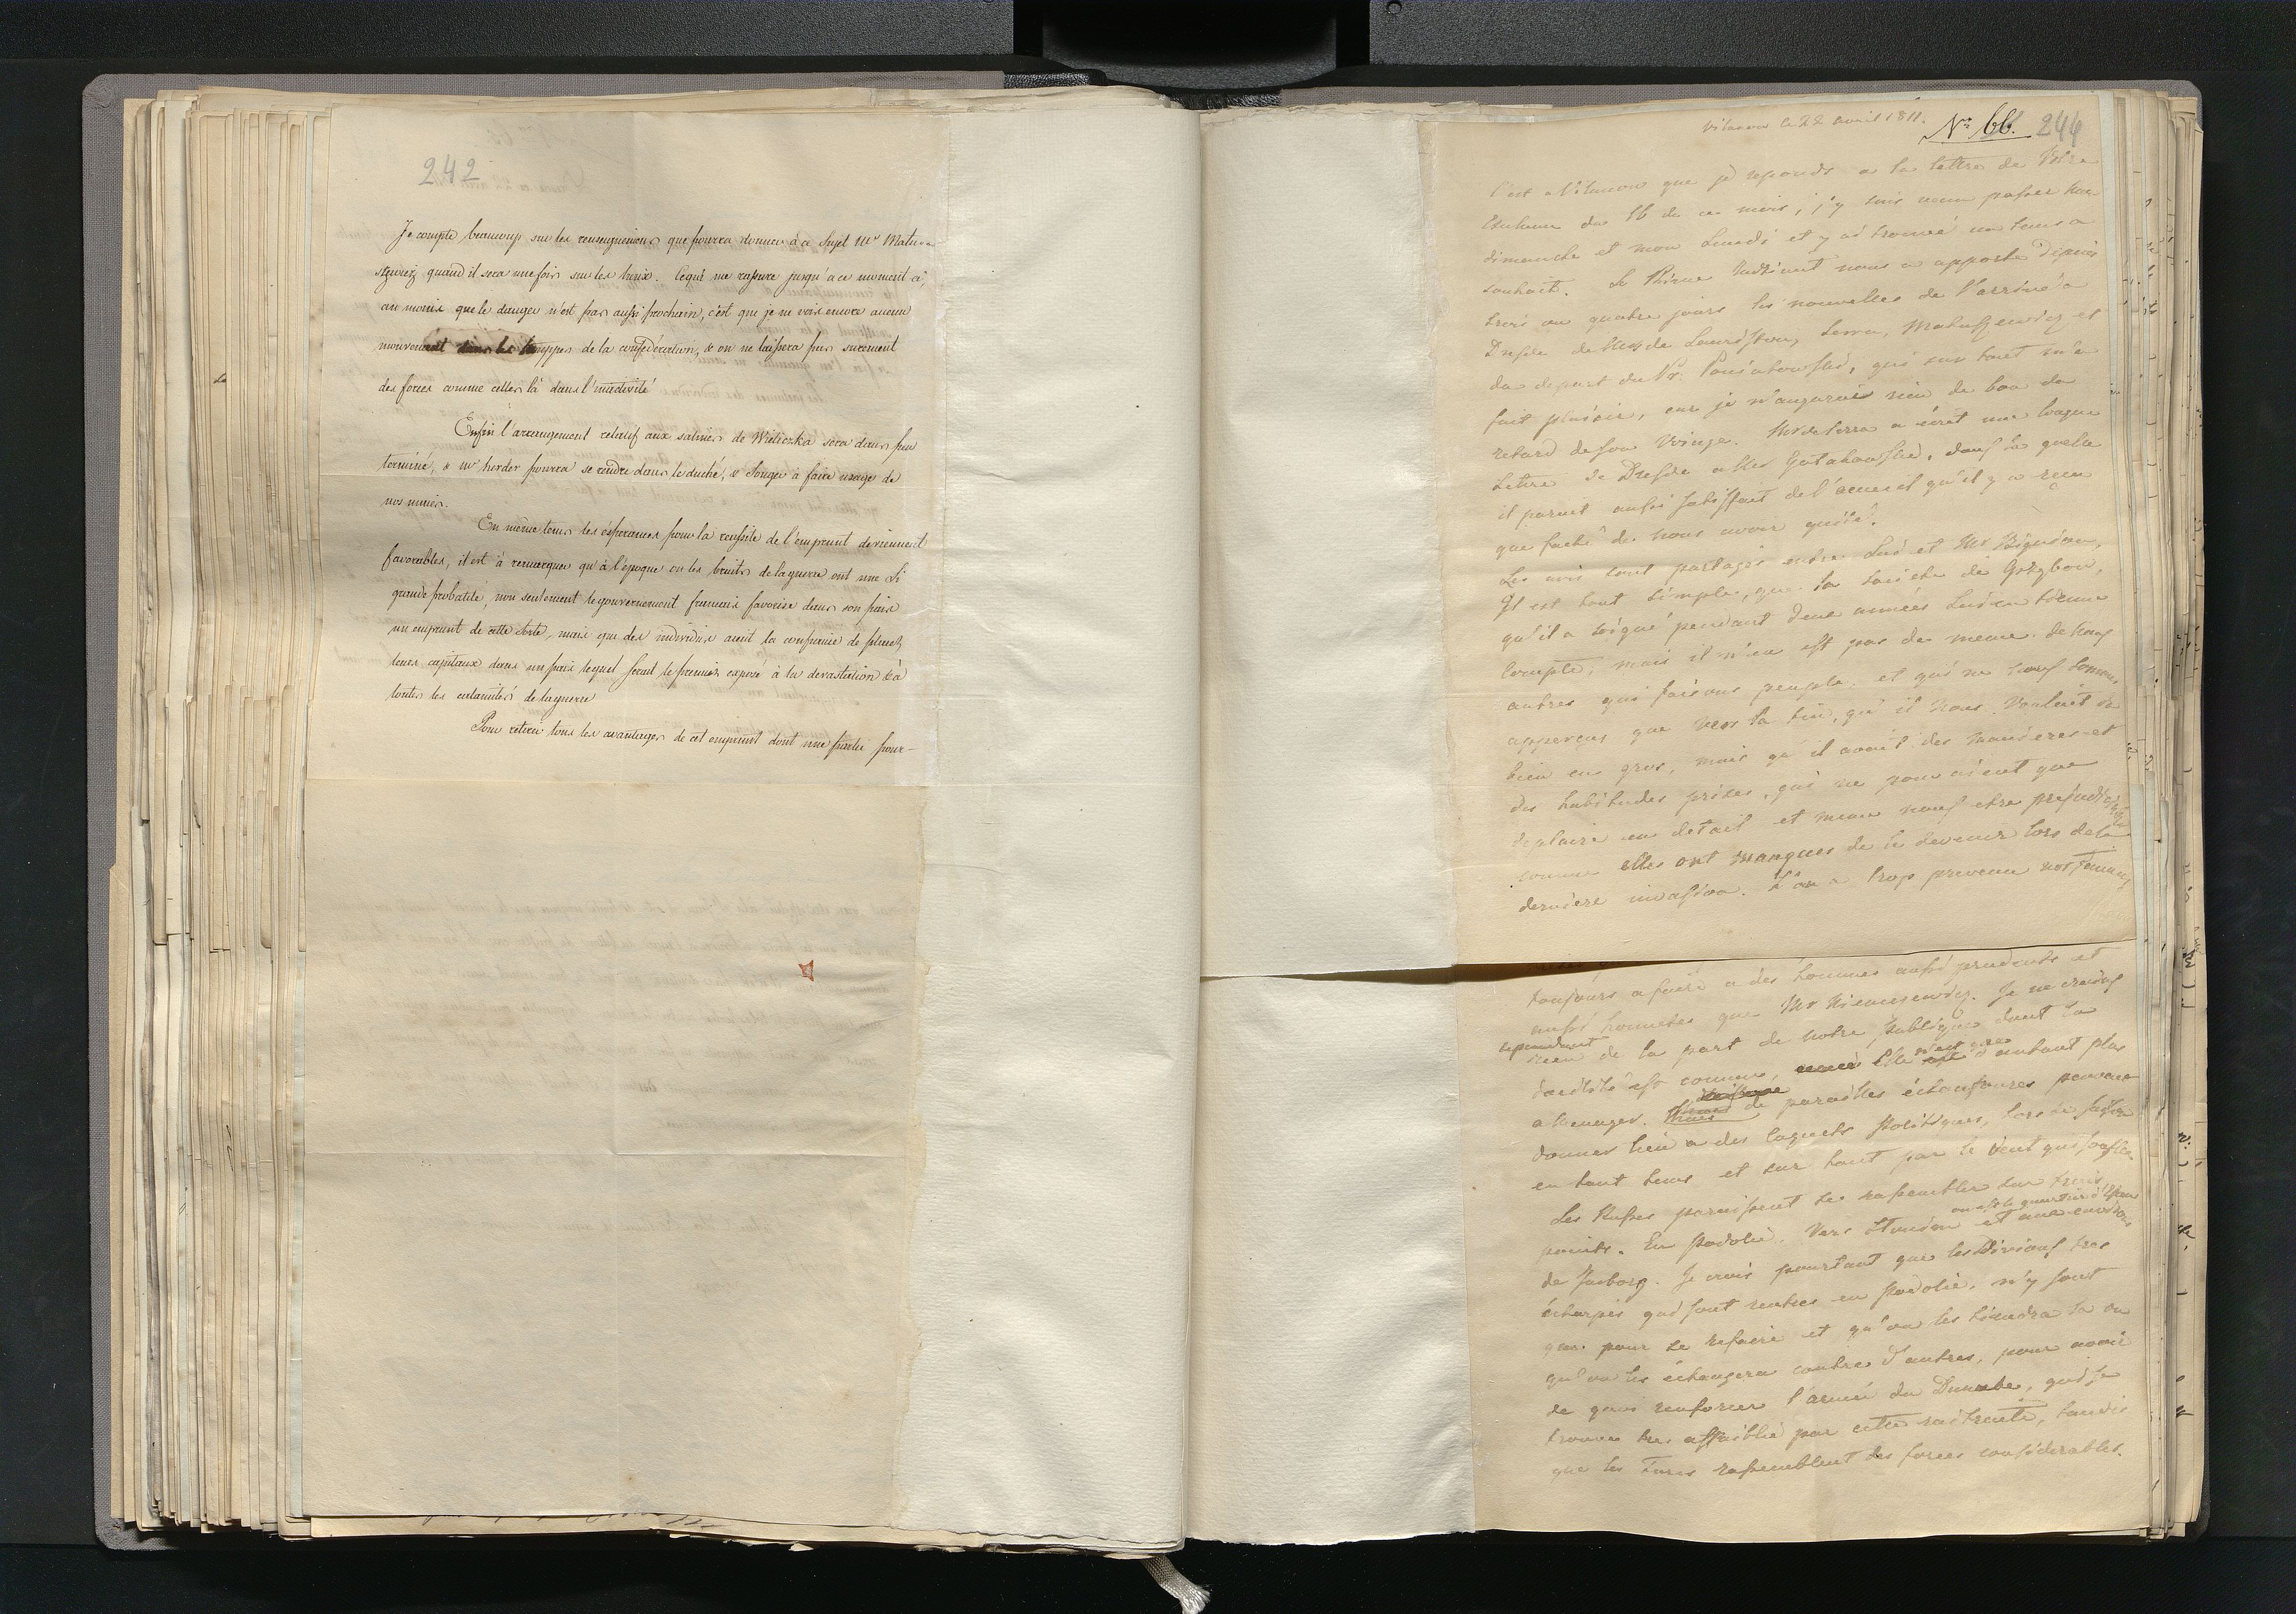 242
Je compte beaucoup sur les renseignemens que pourra donner à ce Sujet Mr Matus-
szewicz quand il sera une fois sur les lieux. Ce qui me rassure jusqu'à ce moment ci,
au moins que le danger n'est pas aussi prochain, c'est que je ne vois encore aucun
mouvement dans les trouppes de la confédération, & on ne laissera pas surement
des forces comme celles là dans l'inactivité
Enfin l'arrangement relatif aux salines de Wieliczka sera dans peu
terminé, & mr herder pourra se rendre dans le duché, & Songer à faire usage de
nos mines.
En même tems les espérances pour la reussite de l'emprunt deviennent
favorables, il est à remarquer qu'à l'époque ou les bruits de la guerre ont une Si
grande probatité, non seulement le gouvernement francais favorise dans son païs
un emprunt de cette sorte, mais que des individus aient la confiance de placer
leurs capitaux dans un païs lequel serait le premier exposé à la devastation & à
toutes les calamités de la guerre
Pour retirer tous les avantages de cet emprunt dont une partie pour-
Vilanow le 22 avril 1811.
Nr. 66. 244
C'est a Vilanow que je reponds a la lettre de Votre
Excellence du 16 de ce mois, j'y suis venu passer mon
dimanche et mon Lundi et y ai trouvé un tems a
souhait. Le Prince nous a apporté depuis
trois ou quatre jours les nouvelles de l'arrivé a
Dresde de Mrs de Lauriston, Serra, Matuszewicz et
du depart du Pr. Poniatowski, qui sur tout m'a
fait plaisir, car je n'augurais rien de bon du
retard de son voiage. Mr de Serra a écrit une longue
lettre de Dresde a Mr Gutakowski, dans la quelle
il parait aussi satisfait de l'accueil qu'il y a recu
que faché de nous avoir quité.
Les avis sont partagés entre Lui et Mr Bignon,
Il est tout simple, que la société de Grzybow,
qu'il a soigné pendant deux années Lui en tienne
compte, mais il n'en est pas de meme de nous
autres qui faisons peuple, et qui ne nous sommes
apperçus que vers la fin, qu'il nous voulait du
bien en gros, mais qu'il avait des manieres et
des habitudes prises, qui ne pouvaient que
deplaire en detail et meme nous etre prejudiciables
comme elles ont manqués de le devenir lors de la
derniere invasion. L'on a trop prevenu nos femmes
toujours a faire a des hommes aussi prudents et
aussi honnetes que Mr Niemcewicz. Je ne crains
cependant
rien de la part de notre publique dont la
docilité est connue, elle n'est que d'autant plus
a menager. de pareilles échaufourées peuvent
donner lieu a des caquets politiques, hors de saison
en tout tems et sur tout par le vent qui souffle
Les Russes paraissent se rassembler sur trois
points. En Podolie. Vers Slonim et aux environs
de Jurborg. Je crois pourtant que les Divisions tres
écharpés qui sont rentrés en podolie, n'y sont
que pour se refaire et qu'on les tiendra la ou
qu'on les échangera contre d'autres, pour avoir
de quoi renforcer l'armée du Danube, qui se
trouve tres affaiblie par cette retraite, tandis
que les Turcs rassemblent des forces considerables.